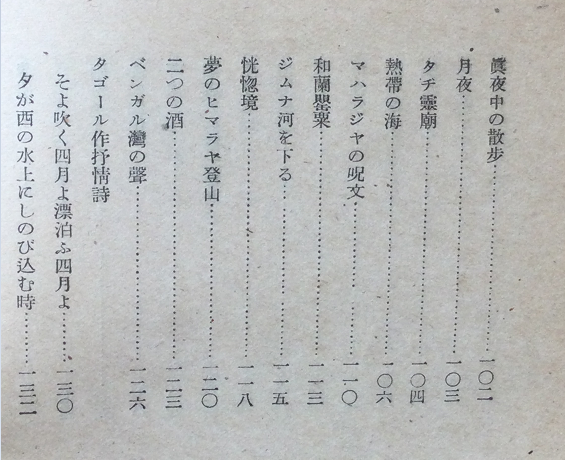 眞夜中の散步……………………一〇二
月夜……………………一〇三
タチ靈廟……………………一〇四
熱帶の海……………………一〇六
マハラジヤの呪文……………………一一〇
和蘭罌粟……………………一一三
ジムナ河を下る……………………一一五
恍惚境……………………一一八
夢のヒマラヤ登山……………………一二〇
二つの酒……………………一二三
ベンガル灣の聲……………………一二六
タゴール作抒情詩
そよ吹く四月よ漂泊ふ四月よ………一三〇
夕が西の水上にしのび込む時………一三二